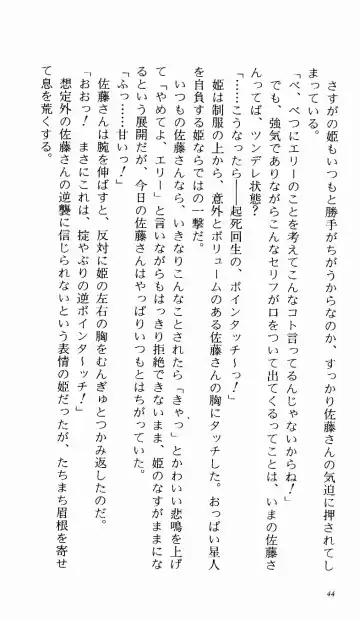 さすがの姫もいつもと勝手がちがうからなのか、すっかり佐藤さんの気迫に押されてし
まっている。
「べ、べつにエリーのことを考えてこんなコト言ってるんじゃないからね！」
でも、強気でありながらこんなセリフが口をついて出てくるってことは、いまの佐藤さ
んってば、ツンデレ状態？
「……こうなったら――起死回生の、ボインタッチ〜っ！」
姫は制服の上から、意外とボリュームのある佐藤さんの胸にタッチした。おっぱい星人
を自負する姫ならではの一撃だ。
いつもの佐藤さんなら、いきなりこんなことされたら「きゃっ」とかわいい悲鳴を上げ
て「やめてよ、エリー」と言いながらもはっきり拒絶できないまま、姫のなすがままにな
るという展開だが、今日の佐藤さんはやっぱりいつもとはちがっていた。
「ふっ……甘いっ！」
佐藤さんは腕を伸ばすと、反対に姫の左右の胸をむんぎゅとつかみ返したのだ。
「おおっ！　まさにこれは、掟やぶりの逆ボインタ〜ッチ！」
想定外の佐藤さんの逆襲に信じられないという表情の姫だったが、たちまち眉根を寄せ
て息を荒くする。
44